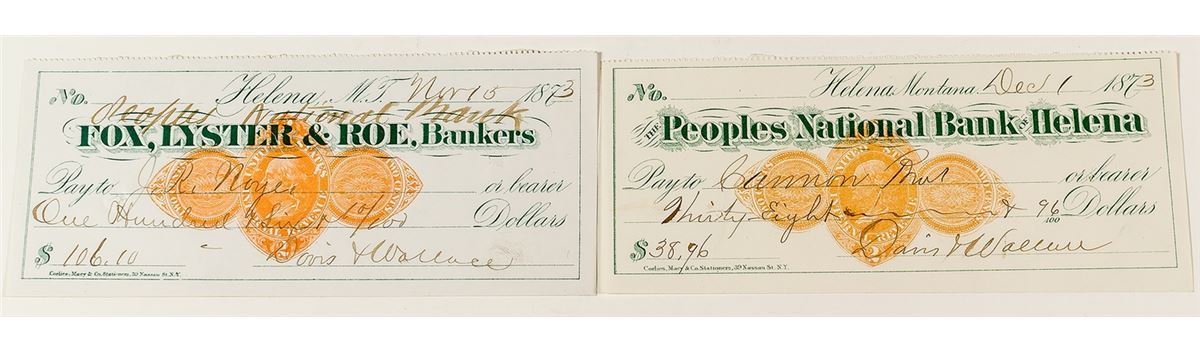 No. Helena, M.T. Nov 15 1873
Peoples National Bank
FOX, LYSTER & ROE, Bankers
Pay to J. R. Noyes or bearer
One Hundred & 10/100 Dollars
$ 106.10 Davis & Wallace
Corlies, Macy & Co. Stationers, 39 Nassau St. N.Y.
No. Helena, Montana, Dec 1 1873
THE Peoples National Bank OF Helena
Pay to Cannon Bros or bearer
Thirty-Eight & 96/100 Dollars
$ 38.96 Davis & Wallace
Corlies, Macy & Co. Stationers, 39 Nassau St. N.Y.